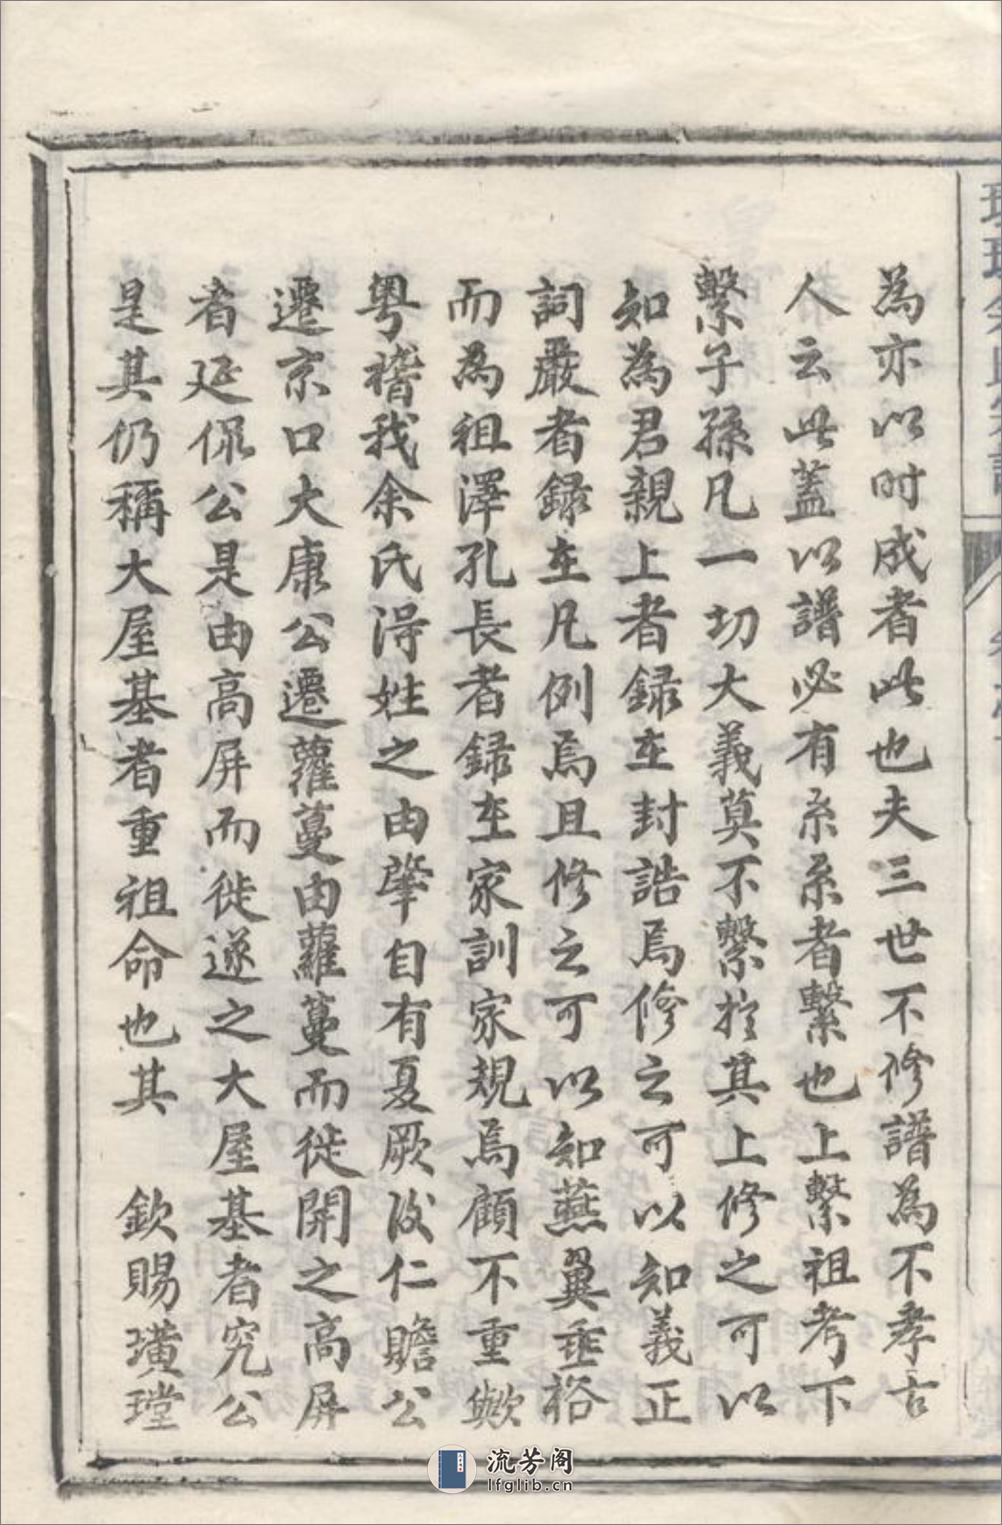 為亦以时成者此也夫三世不修譜為不孝古
人云此蓋以譜必有系系者繫也上繫祖考下
繫子孫凡一切大義莫不繫扵其上修之可以
知為君親上者録在封誥焉修之可以知義正
詞嚴者録在凡例焉且修之可以知燕翼垂裕
而為祖澤孔長者録在家訓家規焉顧不重歟
粤稽我余氏得姓之由肇自有夏厥後仁贍公
遷京口大康公遷蘿蔓由蘿蔓而徙開之高屏
者延侃公是由高屏而徙遂之大屋基者究公
是其仍稱大屋基者重祖命也其　欽賜璜瑝
流芳阁
lfglib.cn